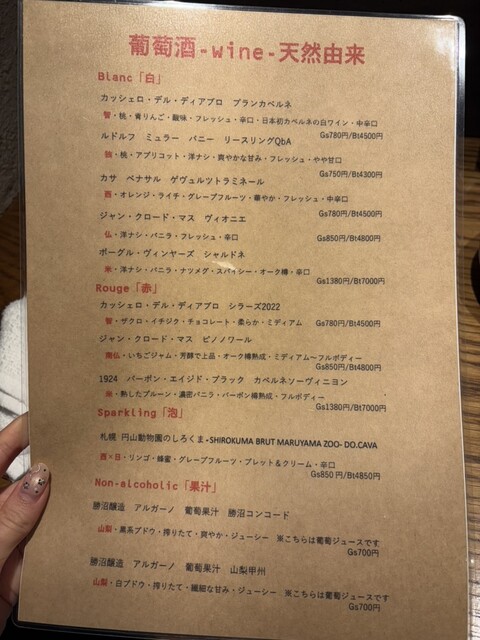 葡萄酒-wine-天然由来
Blanc「白」
カッシェロ・デル・ディアブロ ブランカベルネ
智・桃・青りんご・酸味・フレッシュ・辛口・日本初カベルネの白ワイン・中辛口
Gs780円/Bt4500円
ルドルフ ミュラー バニー リースリングQbA
独・桃・アプリコット・洋ナシ・爽やかな甘み・フレッシュ・やや甘口
Gs750円/Bt4300円
カサ ベナサル ゲヴュルツトラミネール
西・オレンジ・ライチ・グレープフルーツ・華やか・フレッシュ・中辛口
Gs780円/Bt4500円
ジャン・クロード・マス ヴィオニエ
仏・洋ナシ・バニラ・フレッシュ・辛口
Gs850円/Bt4800円
ボーグル・ヴィンヤーズ シャルドネ
米・洋ナシ・バニラ・ナツメグ・スパイシー・オーク樽・辛口
Gs1380円/Bt7000円
Rouge「赤」
カッシェロ・デル・ディアブロ シラーズ2022
智・ザクロ・イチジク・チョコレート・柔らか・ミディアム Gs780円/Bt4500円
ジャン・クロード・マス ピノノワール
南仏・いちごジャム・芳醇で上品・オーク樽熟成・ミディアム～フルボディー
Gs850円/Bt4800円
1924 バーボン・エイジド・ブラック カベルネソーヴィニヨン
米・熟したプルーン・濃密バニラ・バーボン樽熟成・フルボディー
Gs1380円/Bt7000円
Sparkling「泡」
札幌 円山動物園のしろくま-SHIROKUMA BRUT MARUYAMA ZOO- DO.CAVA
西×日・リンゴ・蜂蜜・グレープフルーツ・ブレット＆クリーム・辛口
Gs850円/Bt4850円
Non-alcoholic「果汁」
勝沼醸造 アルガーノ 葡萄果汁 勝沼コンコード
山梨・黒系ブドウ・搾りたて・爽やか・ジューシー ※こちらは葡萄ジュースです
Gs700円
勝沼醸造 アルガーノ 葡萄果汁 山梨甲州
山梨・白ブドウ・搾りたて・繊細な甘み・ジューシー ※こちらは葡萄ジュースです
Gs700円